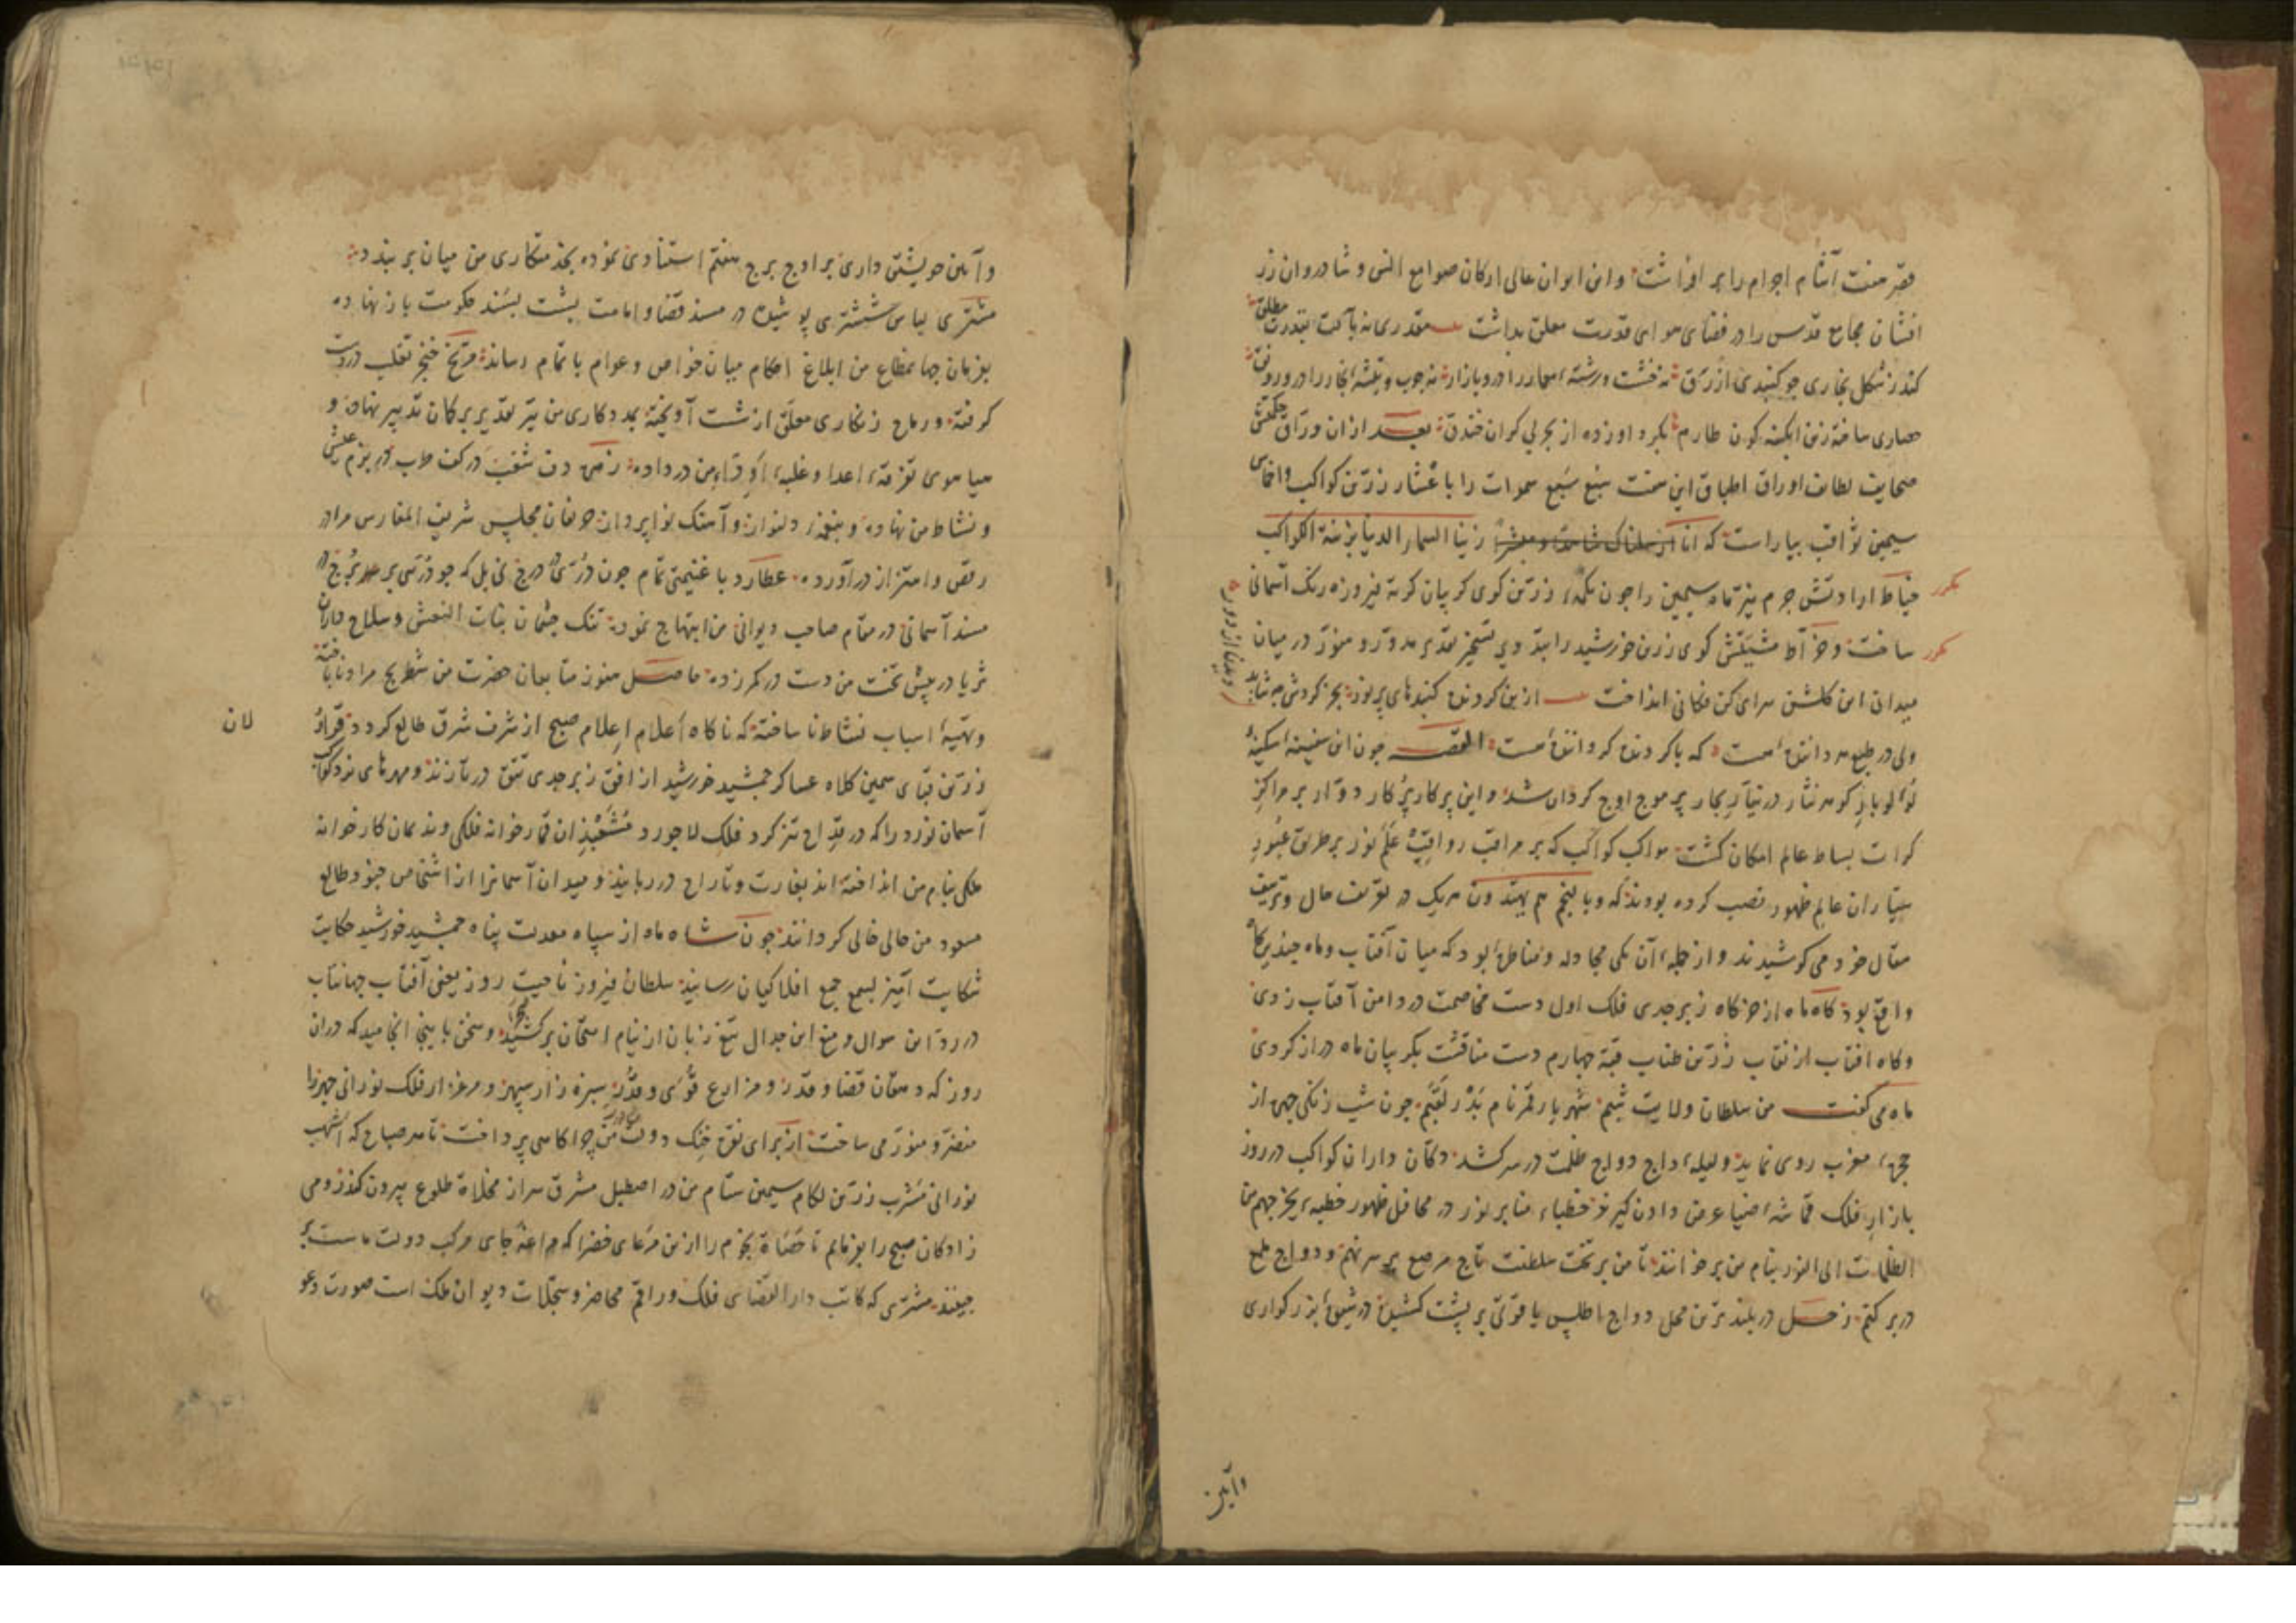 قصر هفت آشام اجرام را بر افراشت و این ایوان عالی ارکان صوامع انس و شادروان زر
افشان مجامع قدس را در فضای هوای قدرت معلق بداشت مقدری نه بآلت بقدرت مطلق
کند ز شکل بخاری چو کنبدی ازرق نه خشت و رشته معمار را درو بازار نه چوب و تیشه نجار را درو رونق
حصاری ساخته زین ابکینه کون طارم بکرد او زده از بحر بی کران خندق بعد از ان وراق حکمتش
صحایف لطایف اوراق اطباق این هفت سبع سموات را باعشار زرین کواکب و اخماس
سیمین ثواقب بیاراست که انا زینا السماء الدنیا بزینة الکواکب
خیاط ارادتش جرم نیز ماه سیمین را چون تکمه زرین کوی کریبان کرته فیروزه رنک آسمانی
ساخت و خراط مشیتش کوی زرین خورشید را بید تسخیر تقدیر مدور و منور در میان
میدان این کلشن سرای کن فکانی انداخت ازین کردنده کنبدهای پر نور بجز کردش چه شاید دیدن از دور
ولی در طبع هر داننده است که با کردنده کرداننده است القصه چون این سفینه سکینه
لؤلؤ بار کوهر نثار در تیار بحار پر موج اوج کردان شد و این پرکار پرکار دوار بر مراکز
کرات بساط عالم امکان کشت مواکب کواکب که بر مراقب رواقب علم نور بر طریق عبور
سیاران عالم ظهور نصب کرده بودند که و بالنجم هم یهتدون هریک در تعریف حال و توصیف
مقال خود می کوشیدند و از جمله آن یکی مجادله و مناظره بود که میان آفتاب و ماه چندین کاه
واقع بود کاه ماه از خرکاه زبرجدی فلک اول دست مخاصمت در دامن آفتاب زدی
و کاه افتاب از نقاب زرین طناب قبه چهارم دست مناقشت بکریبان ماه دراز کردی
ماه می کفت من سلطان ولایت شبم شهریار قمر نام بدر لقبم چون شب زنکی چهر از
حجره مغرب روی نماید و لیله داج دواج ظلمت در سر کشد دکان داران کواکب در روز
بازار فلک قماشه ضیا عرض دادن کیرند خطباء منابر نور در محافل ظهور خطبه یخرجهم من
الظلمات الی النور بنام من برخوانند تا من بر تخت سلطنت تاج مرصع بر سر نهم و دواج ملمع
در بر کنم زحل در بلند ترین محل دواج اطلس یاقوتی بر پشت کشیده در شیوه بزرکواری
مکرر
مکرر
وآیین
و آیین خویشتن داری بر اوج برج هفتم استادی نموده بخدمتکاری من میان بر بندد
مشتری لباس ششتری پوشیده در مسند قضا و امامت پشت بمسند حکومت باز نهاده
بفرمان جهانمطاع من ابلاغ احکام میان خواص و عوام باتمام رساند مریخ خنجر تغلب در دست
کرفته و رماح زنکاری معلق از شست آویخته بمددکاری من تیر تقدیر بر کمان تدبیر نهاده و
هیاهوی تفرقه اعدا و غلبه اوداء من در داده زهره دف شعف در کف طرب در بزم عیش
و نشاط من نهاده و بنغمه دلنواز و آهنک نوا پرداز حریفان مجلس شریف المغارس مرا در
رقص و اهتزاز در آورده عطارد با غنیمتی تمام چون دری در درج نی بل که چو دری بر برج در
مسند آسمانی در مقام صاحب دیوانی من ابتهاج نموده تنک چشمان بنات النعش و سلاح داران
ثریا در پیش تخت من دست در کمر زده حاصل هنوز متابعان حضرت من شطرنج مراد نا باخته
و تهیه اسباب نشاط نا ساخته که ناکاه اعلام اعلام صبح از شرف شرق طالع کردد
زرین قبای سیمین کلاه عساکر جمشید خورشید از افق زبرجدی تتق در تازند و مهرهای نرد کواکب
آسمان نورد را که در قداح نه کرد فلک لاجورد مشعبذان قمارخوانه فلکی و ندیمان کارخوانه
ملکی بنام من انداخته اند بغارت و تاراج در ربایند و میدان آسمانرا از اشخاص جنود طالع
مسعود من حالی خالی کردانند چون شاه ماه از سپاه معدلت پناه جمشید خورشید حکایت
شکایت آمیز بسمع جمع افلاکیان رسانید سلطان فیروز ناحیت روز یعنی آفتاب جهانتاب
در رد این سوال و منع این جدال تیغ زبان از نیام امتحان برکشید و سخن باینجا انجامید که در ان
روز که دهقان قضا و قدر مزارع قوی و قدر سبزه زار سپهر و مرغزار فلک نورانی چهر را
منضر و منور می ساخت از برای نقره خنک دولت من چراکاهی پرداخت تا هر صباح که اشهب
نورانی مشرب زرین لکام سیمین ستام من در اصطبل مشرق سر از مخلاة طلوع بیرون کند
زادکان صبح را بفرمایم تا حصاة نجوم را ازین مرعای خضرا که مراغه جای مرکب دولت ماست بر
چینند مشتری که کاتب دار القضای فلک و راقم محاضر و سجلات دیوان ملک است صورت دعو
لان